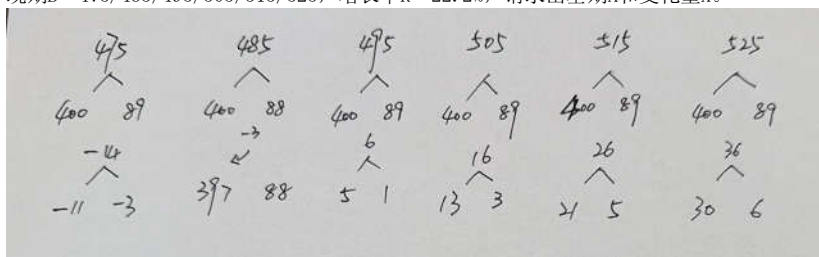 475 485 495 505 515 525
400 89 400 88 400 89 400 89 400 89 400 89
-14 -3 6 16 26 36
-11 -3 397 88 5 1 13 3 21 5 30 6